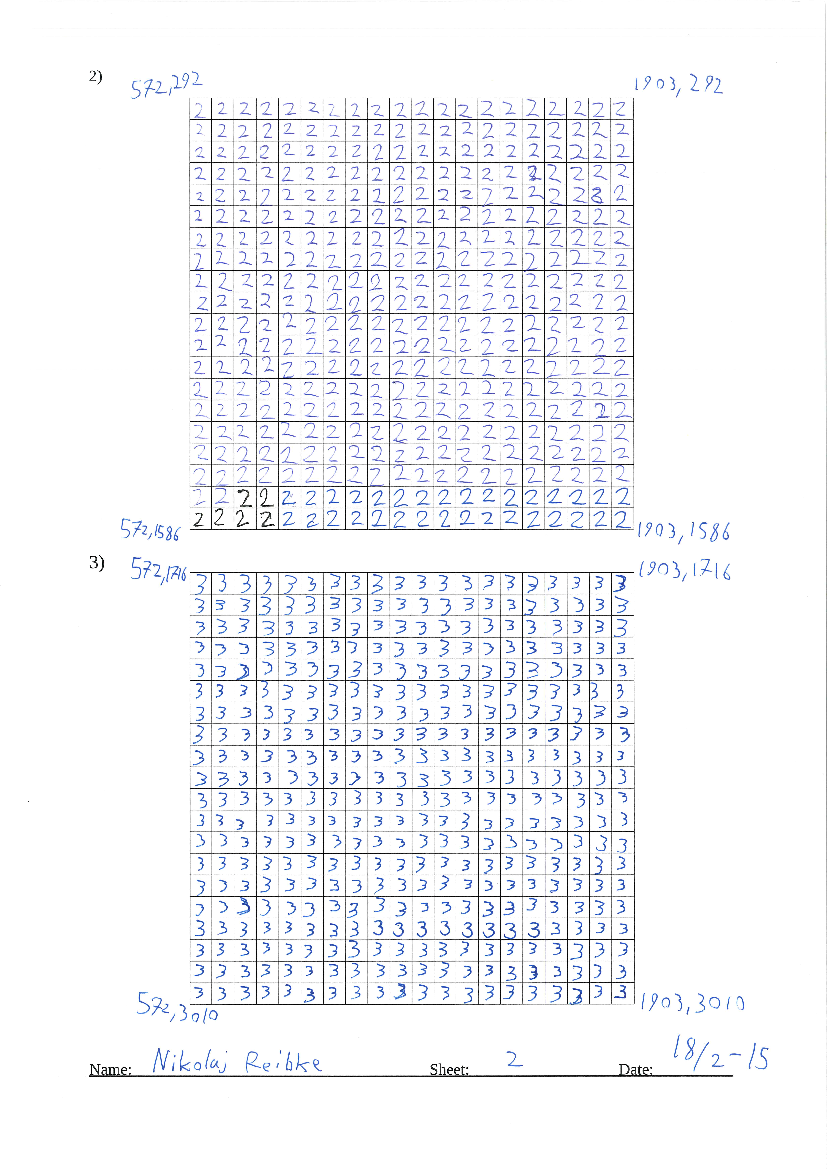 2)
572,292 1903,292
2 2 2 2 2 2 2 2 2 2 2 2 2 2 2 2 2 2 2 2
2 2 2 2 2 2 2 2 2 2 2 2 2 2 2 2 2 2 2 2
2 2 2 2 2 2 2 2 2 2 2 2 2 2 2 2 2 2 2 2
2 2 2 2 2 2 2 2 2 2 2 2 2 2 2 2 2 2 2 2
2 2 2 2 2 2 2 2 2 2 2 2 2 2 2 2 2 2 2 2
2 2 2 2 2 2 2 2 2 2 2 2 2 2 2 2 2 2 2 2
2 2 2 2 2 2 2 2 2 2 2 2 2 2 2 2 2 2 2 2
2 2 2 2 2 2 2 2 2 2 2 2 2 2 2 2 2 2 2 2
2 2 2 2 2 2 2 2 2 2 2 2 2 2 2 2 2 2 2 2
2 2 2 2 2 2 2 2 2 2 2 2 2 2 2 2 2 2 2 2
2 2 2 2 2 2 2 2 2 2 2 2 2 2 2 2 2 2 2 2
2 2 2 2 2 2 2 2 2 2 2 2 2 2 2 2 2 2 2 2
2 2 2 2 2 2 2 2 2 2 2 2 2 2 2 2 2 2 2 2
2 2 2 2 2 2 2 2 2 2 2 2 2 2 2 2 2 2 2 2
2 2 2 2 2 2 2 2 2 2 2 2 2 2 2 2 2 2 2 2
2 2 2 2 2 2 2 2 2 2 2 2 2 2 2 2 2 2 2 2
2 2 2 2 2 2 2 2 2 2 2 2 2 2 2 2 2 2 2 2
2 2 2 2 2 2 2 2 2 2 2 2 2 2 2 2 2 2 2 2
2 2 2 2 2 2 2 2 2 2 2 2 2 2 2 2 2 2 2 2
2 2 2 2 2 2 2 2 2 2 2 2 2 2 2 2 2 2 2 2
572,1586 1903,1586
3)
572,1716 1903,1716
3 3 3 3 3 3 3 3 3 3 3 3 3 3 3 3 3 3 3 3
3 3 3 3 3 3 3 3 3 3 3 3 3 3 3 3 3 3 3 3
3 3 3 3 3 3 3 3 3 3 3 3 3 3 3 3 3 3 3 3
3 3 3 3 3 3 3 3 3 3 3 3 3 3 3 3 3 3 3 3
3 3 3 3 3 3 3 3 3 3 3 3 3 3 3 3 3 3 3 3
3 3 3 3 3 3 3 3 3 3 3 3 3 3 3 3 3 3 3 3
3 3 3 3 3 3 3 3 3 3 3 3 3 3 3 3 3 3 3 3
3 3 3 3 3 3 3 3 3 3 3 3 3 3 3 3 3 3 3 3
3 3 3 3 3 3 3 3 3 3 3 3 3 3 3 3 3 3 3 3
3 3 3 3 3 3 3 3 3 3 3 3 3 3 3 3 3 3 3 3
3 3 3 3 3 3 3 3 3 3 3 3 3 3 3 3 3 3 3 3
3 3 3 3 3 3 3 3 3 3 3 3 3 3 3 3 3 3 3 3
3 3 3 3 3 3 3 3 3 3 3 3 3 3 3 3 3 3 3 3
3 3 3 3 3 3 3 3 3 3 3 3 3 3 3 3 3 3 3 3
3 3 3 3 3 3 3 3 3 3 3 3 3 3 3 3 3 3 3 3
3 3 3 3 3 3 3 3 3 3 3 3 3 3 3 3 3 3 3 3
3 3 3 3 3 3 3 3 3 3 3 3 3 3 3 3 3 3 3 3
3 3 3 3 3 3 3 3 3 3 3 3 3 3 3 3 3 3 3 3
3 3 3 3 3 3 3 3 3 3 3 3 3 3 3 3 3 3 3 3
3 3 3 3 3 3 3 3 3 3 3 3 3 3 3 3 3 3 3 3
572,3010 1903,3010
Name: Nikolaj Reibke Sheet: 2 Date: 18/2-15